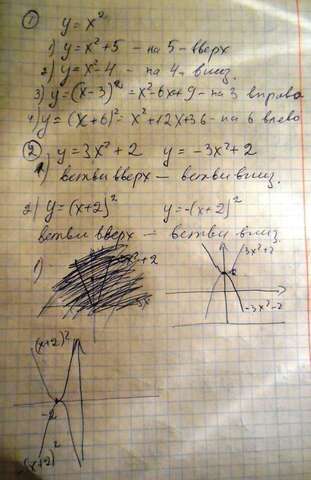 ① y = x²
1) y = x² + 5 - на 5 - вверх
2) y = x² - 4 - на 4 - вниз.
3) y = (x - 3)² = x² - 6x + 9 - на 3 вправо
4) y = (x + 6)² = x² + 12x + 36 - на 6 влево
② y = 3x² + 2 y = -3x² + 2
1) ветви вверх — ветви вниз.
2) y = (x + 2)² y = -(x + 2)²
ветви вверх — ветви вниз
1) x² + 2 3x² + 2
2
-3x² - 2
(x + 2)²
-2
(x + 2)²